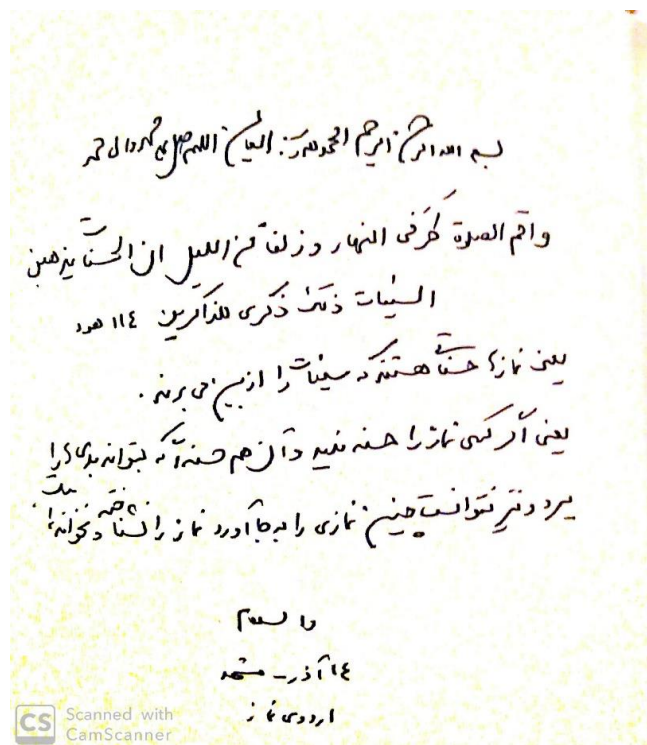 بسم الله الرحمن الرحیم الحمدلله رب العالمین اللهم صل علی محمد و آل محمد
واقم الصلوة طرفی النهار و زلفا من اللیل ان الحسنات یذهبن
السیئات ذلک ذکری للذاکرین ١١٤ هود
یعنی نمازها حسناتی هستند که سیئات را از بین می برند .
یعنی اگر کسی نماز را حسنه ندید و آن هم حسنه ای که بتواند بدی ها را
ببرد و نیز نتوانست چنین نمازی را به جا آورد نماز را نشناخته و نخوانده است
والسلام
١٤ آذر - مشهد
اردوی نماز
CS Scanned with
CamScanner